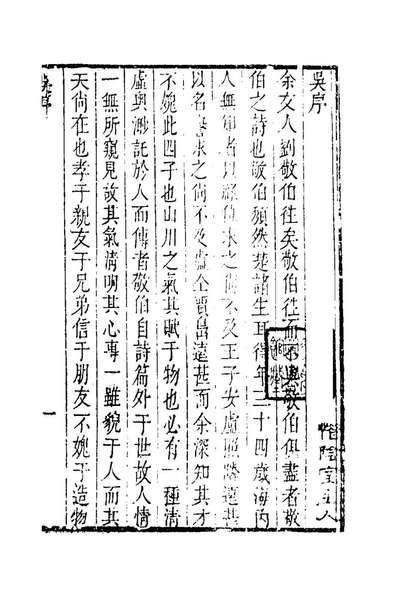 吳序
惜陰室主人
余友人劉敬伯往矣敬伯往而不與敬伯俱盡者敬
伯之詩也敬伯頹然楚諸生耳得年二十四歲海內
人無知者以位求之尚不及王子安盧照隣遠甚
以名譽求之尚不及盧仝賈島遠甚而余深知其才
不媿此四子也山川之氣其賦于物也必有一種清
虛與渺託於人而傳者敬伯自詩篇外于世故人情
一無所窺見故其氣情明其心專一雖貌于人而其
天尚在也孝于親友于兄弟信于朋友不媿于造物
吳序
一